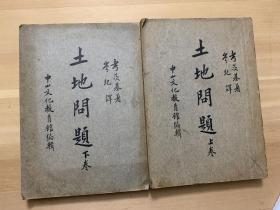 考茨基著
岑紀譯
土地問題
上卷
中山文化教育館編輯
考茨基著
岑紀譯
土地問題
下卷
中山文化教育館編輯